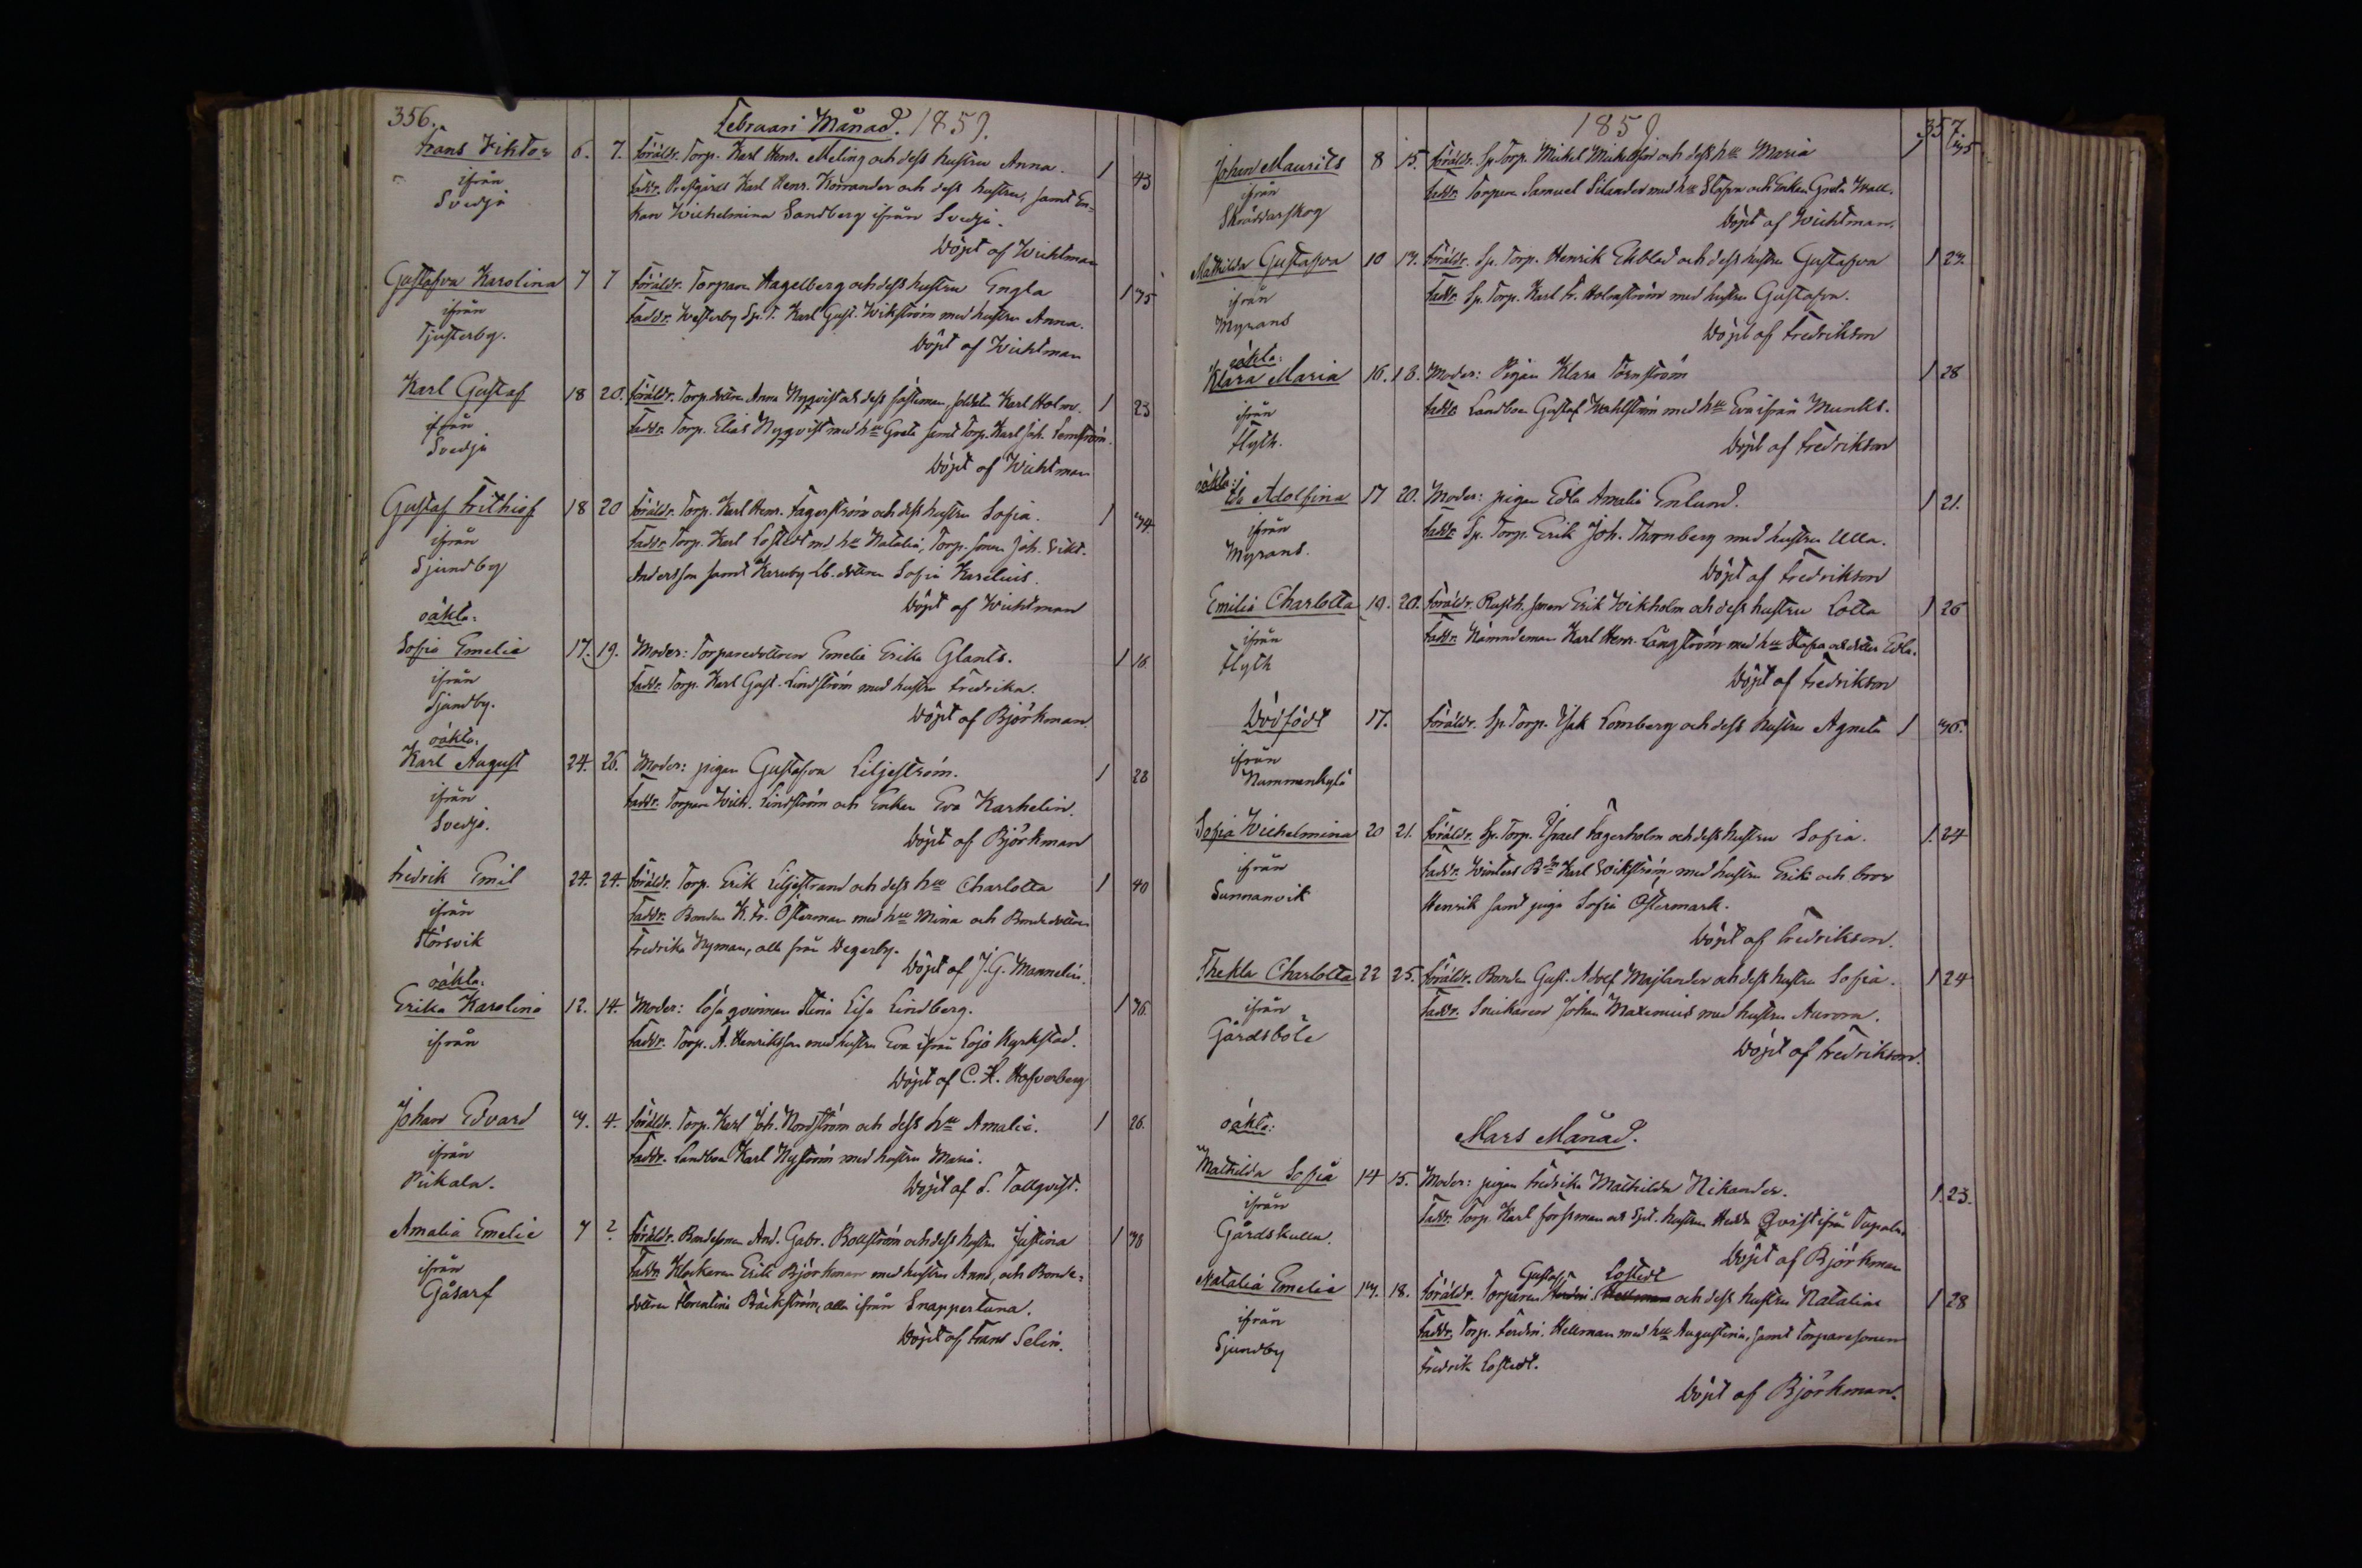 356.
Februari Månad. 1859.
Frans Viktor 6. 7. Föräldr. Torp. Karl Henr. Meling och dess hustru Anna. 1 43
ifrån Faddr. Karl Henr. Körrander och dess hustru, samt En-
Svedja kan Wilhelmina Sandberg ifrån Svedja.
Döpt af Wichtman
Gustafva Karolina 7 7 Föräldr. Torparen Hagelberg och dess hustru Engla 1 35
ifrån Faddr. Westerby Sp. T. Karl Gust. Wikström med hustru Anna.
Tjusterby. Döpt af Wichtman
Karl Gustaf 18 20. Föräldr. Torp.dottren Anna Nyqvist och dess fästeman, soldaten Karl Holm. 1 23
ifrån Faddr. Torp. Elias Nyqvist med hu Greta samt Torp. Karl Joh.
Svedja Döpt af Wichtman
Gustaf Frithiof 18 20 Föräldr. Torp. Karl Henr. Fagerström och dess hustru Sofia. 1 34
ifrån Faddr. Torp. Karl Lostedt md hu Natalia, Torp. sonen Joh. Vikt.
Sjundby Andersson samt Karuby Lb. dottren Sofia Karelius.
Döpt af Wichtman
oäkta:
Sofia Emelia 17. 19. Moder: Torparedottren Emelia Erika Glants. 1 16
ifrån Faddr. Torp. Karl Gust. Lindström med hustru Fredrika.
Sjundby. Döpt af Björkman
oäkta.
Karl August 24. 26. Moder: pigan Gustafva Liljeström. 1 28
ifrån Faddr. Torparen Wilh. Lindström och Enkan Eva Karhelin.
Svedja. Döpt af Björkman
Fredrik Emil 24. 24. Föräldr. Torp. Erik Liljestrand och dess hu Charlotta 1 40
ifrån Faddr. Bonden K. Fr. Österman med hu Mina och Bondedottren
Störsvik Fredrika Nyman, alla från Degerby.
Döpt af J. G. Mannelin.
oäkta:
Erika Karolina 12. 14. Moder: lösa qvinnan Stina Lisa Lindberg. 1 36.
ifrån Faddr. Torp. A. Henriksson med hustru Eva ifrån Lojo Kyrkstad.
Döpt af C. H. Hofverberg
Johan Edvard 3. 4. Föräldr. Torp. Karl Joh. Nordström och dess hu Amalia. 1 26.
ifrån Faddr. Landbon Karl Nyström med hustru Maria.
Pickala. Döpt af L. Tallqvist.
Amalia Emelie 7 ? Föräldr. Bondesonen And. Gabr. Bollström och dess hustru Justina 1 38
ifrån Faddr. Klockaren Erik Björkman med hustru Anna, och Bonde-
Gåsarf dottren Florentina Bäckström, alla ifrån Snappertuna.
Döpt af Frans Selin.
1859
357.
Johan Maurits 8 15. Föräldr. Sp. Torp. Mickel Mickelsson och dess hu Maria 1 35
ifrån Faddr. Torparen Samuel Silander med hu Stafva och Enkan Greta Wall.
Skräddarskog Döpt af Wichtman.
Mathilda Gustafva 10 13. Föräldr. Sp. Torp. Henrik Ekblad och dess hustru Gustafva 1 23.
ifrån Faddr. Sp. Torp. Karl Fr. Holmström med hustru Gustafva.
Myrans Döpt af Fredrikson
oäkta:
Klara Maria 16. 18. Moder: Pigan Klara Törnström 1 28
ifrån Faddr. Landbon Gustaf Wahlström med hu Eva ifrån Munks.
Flyth. Döpt af Fredrikson
oäkta:
Ida Adolfina 17 20. Moder: pigan Edla Amalia Enlund. 1 21.
ifrån Faddr. Sp. Torp. Erik Joh. Thornberg med hustru Ulla.
Myrans. Döpt af Fredrikson
Emilia Charlotta 19. 20. Föräldr. Rusth. sonen Erik Wikholm och dess hustru Lotta 1 26
ifrån Faddr. Nämndeman Karl Henr. Långström med hu Stafva och dotter Edla.
Flyth Döpt af Fredrikson
Dödfödt 17. Föräldr. Sp. Torp. Isak Lomberg och dess hustru Agneta 1 36.
ifrån
Nummenkylä
Sofia Wilhelmina 20 21. Föräldr. Sp. Torp. Israel Fagerholm och dess hustru Sofia. 1. 24
ifrån Faddr. Karl Wikström med hustru Erika och bror
Sunnanvik Henrik samt piga Sofia Östermark.
Döpt af Fredrikson.
Thekla Charlotta 22 25. Föräldr. Bonden Gust. Adolf Majlander och dess hustru Sofia. 1 24
ifrån Faddr. Snickaren Johan Maxenius med hustru Aurora.
Gårdsböle Döpt af Fredrikson.
oäkta:
Mars Månad.
Mathilda Sofia 14 15. Moder: pigan Fredrika Mathilda Nikander. 1. 23.
ifrån Faddr. Torp. Karl Forssman och Sqt. hustrun Hedda Qvist ifrån
Gårdskulla. Döpt af Björkman
Gustaf Lostedt
Natalia Emelia 17. 18. Föräldr. Torparen Ferdin. Hellman och dess hustru Natalia 1 28
ifrån Faddr. Torp. Ferdin. Hellman med hu Augustina, samt Torparesonen
Sjundby Fredrik Lostedt.
Döpt af Björkman.